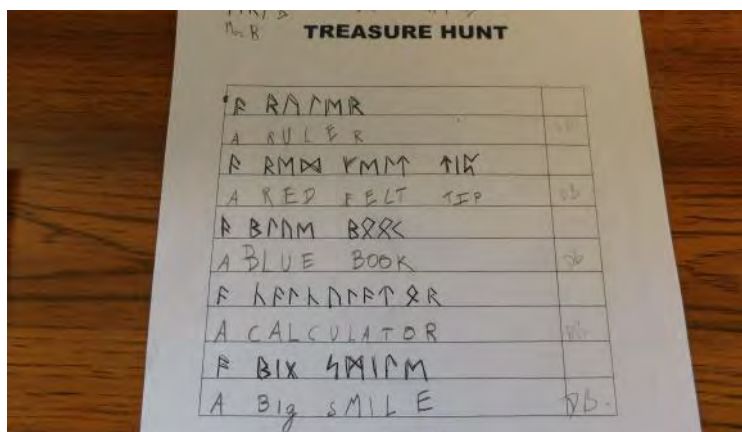 TREASURE HUNT
ᚨ ᚱᚢᛚᛖᚱ
A RULER
ᚨ ᚱᛖᛞ ᚠᛖᛚᛏ ᛏᛁᛈ
A RED FELT TIP
ᚨ ᛒᛚᚢᛖ ᛒᛟᛟᚲ
A BLUE BOOK DB
ᚨ ᚳᚨᛚᚳᚢᛚᚨᛏᛟᚱ
A CALCULATOR
ᚨ ᛒᛁᚷ ᛋᛗᛁᛚᛖ
A Big SMILE DB.